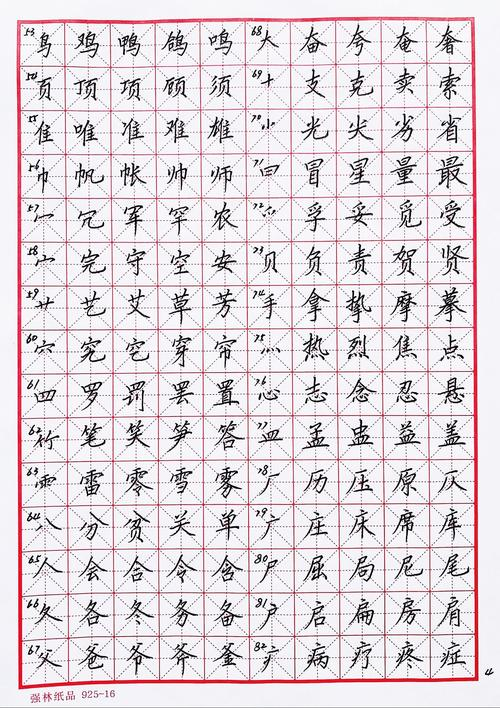 53 鸟 鸡 鸭 鸽 鸣 68 大 奋 夸 奄 奢
54 页 顶 项 顾 须 69 十 支 克 卖 索
55 隹 唯 准 难 雄 70 小 光 尖 劣 省
56 巾 帆 帐 帅 师 71 曰 冒 星 量 最
57 冖 冗 军 罕 农 72 爫 孚 妥 觅 受
58 宀 完 守 空 安 73 贝 负 责 贺 贤
59 艹 艺 艾 草 芳 74 手 拿 挚 摩 摹
60 穴 究 空 穿 帘 75 灬 热 烈 焦 点
61 罒 罗 罚 罢 置 76 心 志 念 忍 悬
62 竹 笔 笑 笋 答 77 皿 孟 盅 益 盖
63 雨 雷 零 雪 雾 78 厂 历 压 原 仄
64 八 分 贫 关 单 79 广 庄 床 席 库
65 人 会 合 令 含 80 尸 屈 局 尼 尾
66 夂 各 冬 务 备 81 户 启 扁 房 肩
67 父 爸 爷 斧 釜 82 疒 病 疗 疼 症
4
强林纸品 925-16